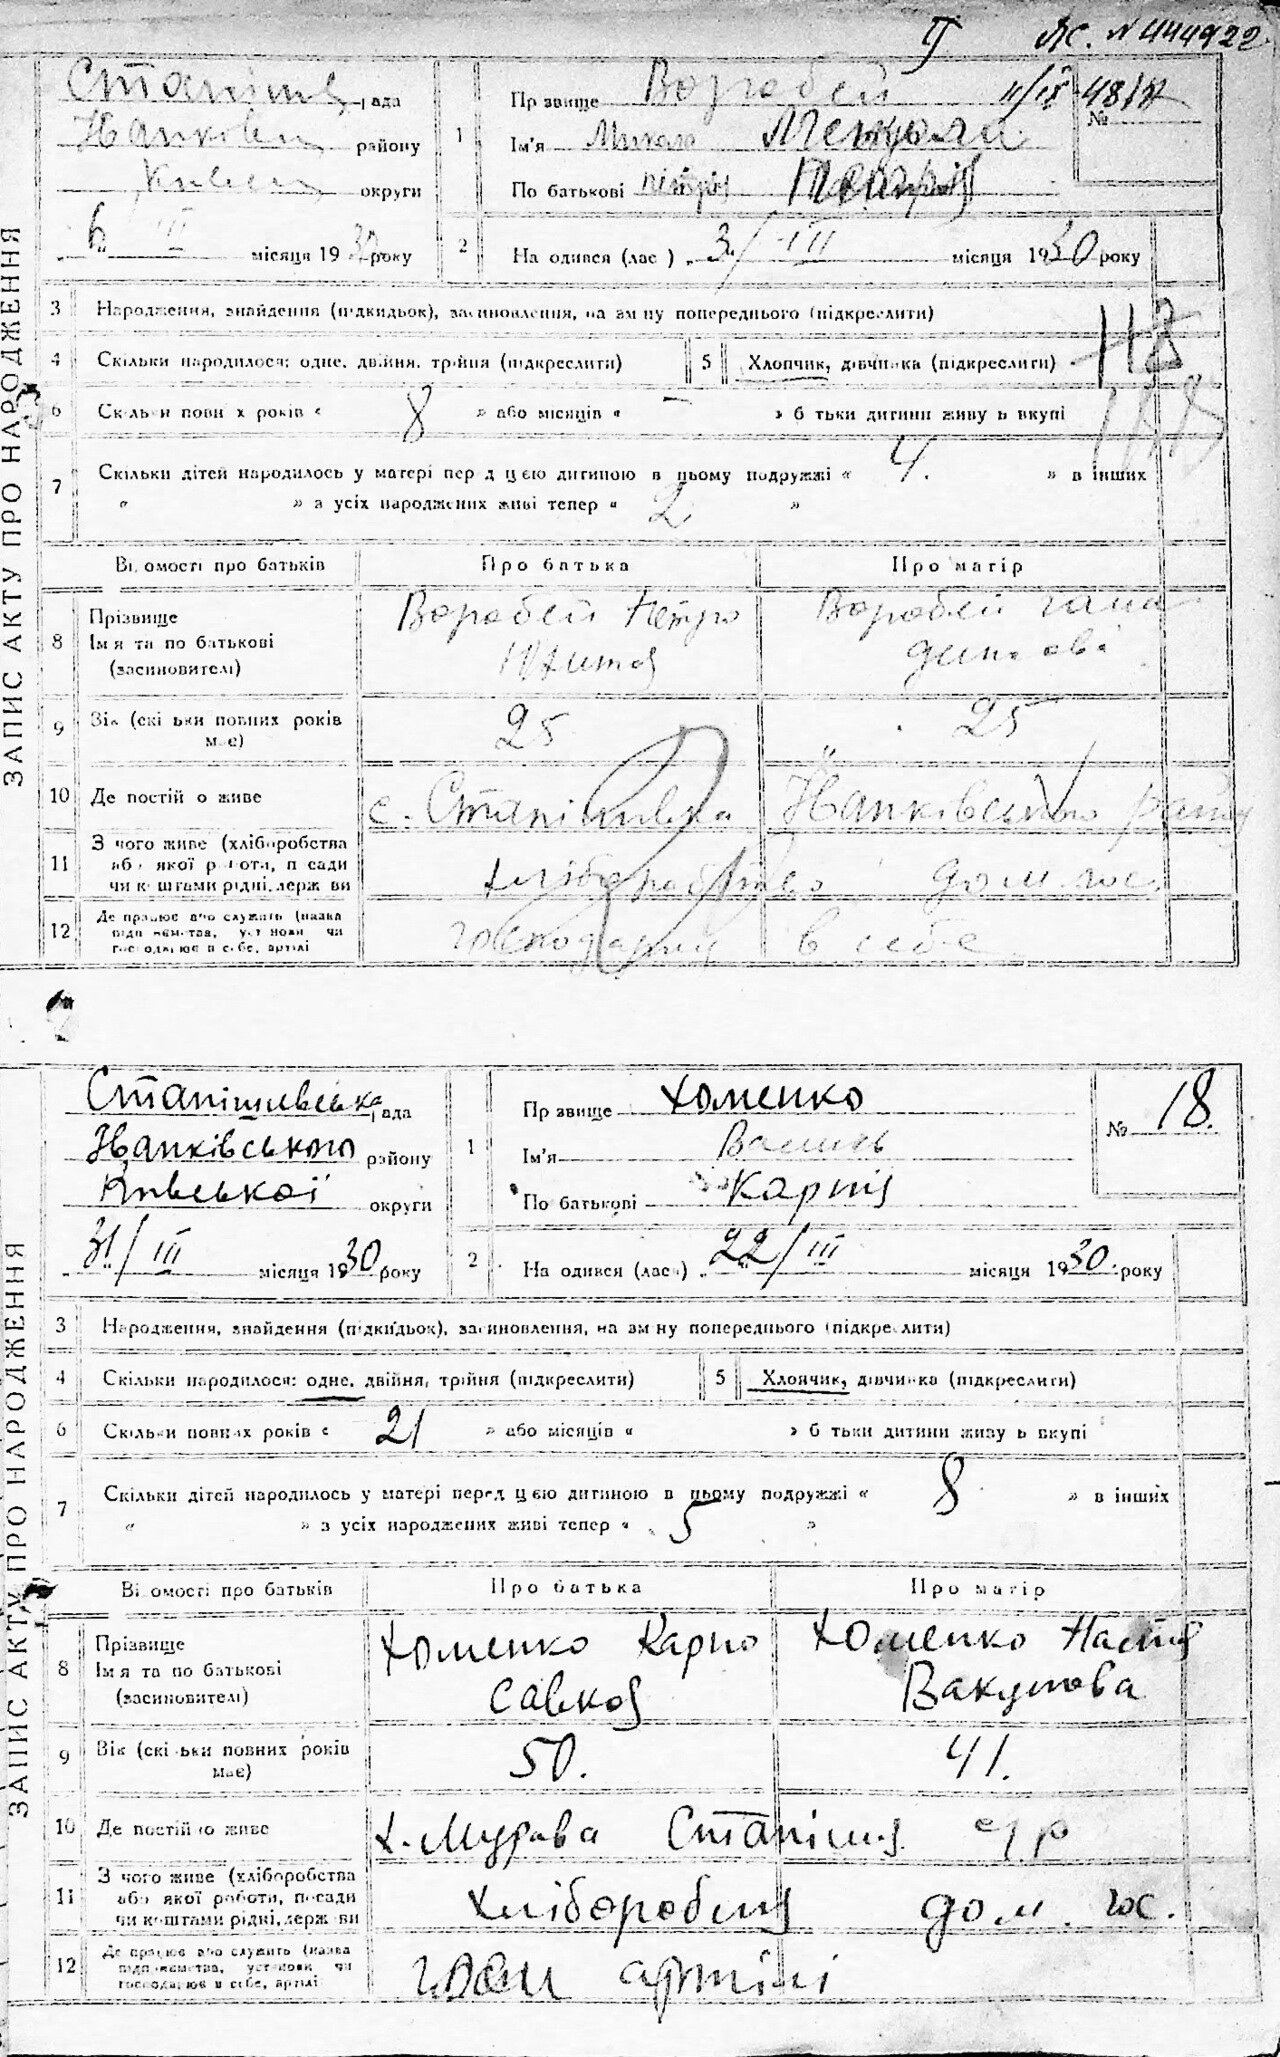 ЗАПИС АКТУ ПРО НАРОДЖЕННЯ
ЖС. N 444922
рада
району
округи
6 III місяця 1930 року
1
Прізвище Воробей
Ім'я Микола Микола
По батькові Петрів
№
2
Народився (лася) „3/III місяця 1930 року
3 Народження, знайдення (підкидьок), засиновлення, на зміну попереднього (підкреслити)
4 Скільки народилося: одне, двійня, трійня (підкреслити)
5 Хлопчик, дівчинка (підкреслити)
6 Скільки повних років « 8 » або місяців « – » батьки дитини живуть вкупі
7 Скільки дітей народилось у матері перед цією дитиною в цьому подружжі « 4. » в інших
« » з усіх народжених живі тепер « 2 »
Відомості про батьків Про батька Про матір
8 Прізвище
Ім'я та по батькові
(засиновителі)
Воробей Петро
Воробей
9 Вік (скільки повних років має)
25 25
10 Де постійно живе
с. Станішівка Янківського району
11 З чого живе (хліборобства
або якої роботи, посади
чи коштами рідні, держави
хліборобство дом гос.
12 Де працює або служить (назва
підприємства, установи чи
господарює в себе, артілі
господарии в себе
ЗАПИС АКТУ ПРО НАРОДЖЕННЯ
Станішивська рада
району
Київської округи
31/III місяця 1930 року
1
Прізвище Хоменко
Ім'я Василь
По батькові Карпів
№ 18.
2
Народився (лася) „22/III місяця 1930. року
3 Народження, знайдення (підкидьок), засиновлення, на зміну попереднього (підкреслити)
4 Скільки народилося: одне, двійня, трійня (підкреслити)
5 Хлопчик, дівчинка (підкреслити)
6 Скільки повних років « 21 » або місяців « » батьки дитини живуть вкупі
7 Скільки дітей народилось у матері перед цією дитиною в цьому подружжі « 8 » в інших
« » з усіх народжених живі тепер « 5 »
Відомості про батьків Про батька Про матір
8 Прізвище
Ім'я та по батькові
(засиновителі)
Хоменко Карпо
Савков
Хоменко Настя
Вакулова
9 Вік (скільки повних років має)
50. 41.
10 Де постійно живе
х. Мурава
11 З чого живе (хліборобства
або якої роботи, посади
чи коштами рідні, держави
дом. гос.
12 Де працює або служить (назва
підприємства, установи чи
господарює в себе, артілі
член артілі